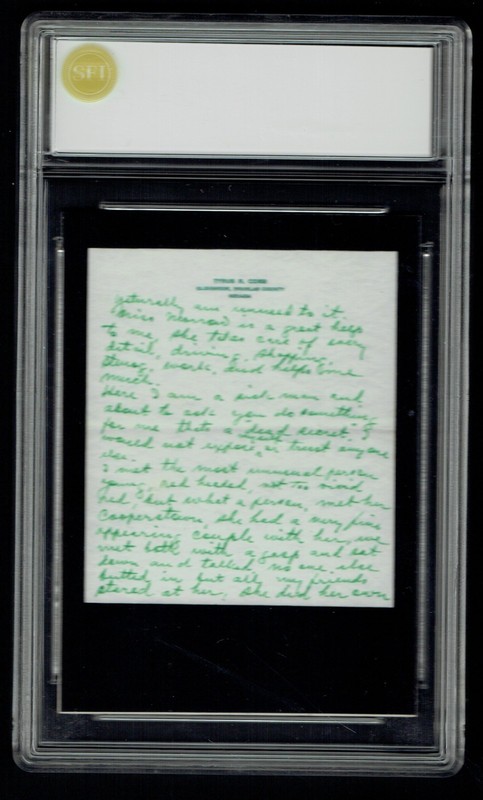 SFI
TYRUS R. COBB
GLENBROOK, DOUGLAS COUNTY
NEVADA
naturally am unused to it.
Miss Morrow is a great help
to me, she takes care of every
detail, driving, shopping,
steno, work, and helps me
much.
Here I am a sick man and
about to ask you do something
for me that a dead secret. I
would not expose or trust anyone
else.
I met the most unusual person
young, red headed, not too vivid
red, but what a person, met her
Cooperstown, she had a very fine
appearing couple with her, we
met both with a gasp and sat
down and talked, no one else
butted in but all my friends
stared at her, she did her own